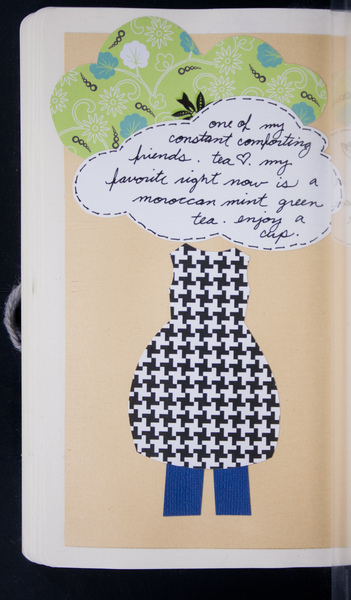 one of my
constant comforting
friends. tea ♡. my
favorite right now is a
moroccan mint green
tea. enjoy a
cup.